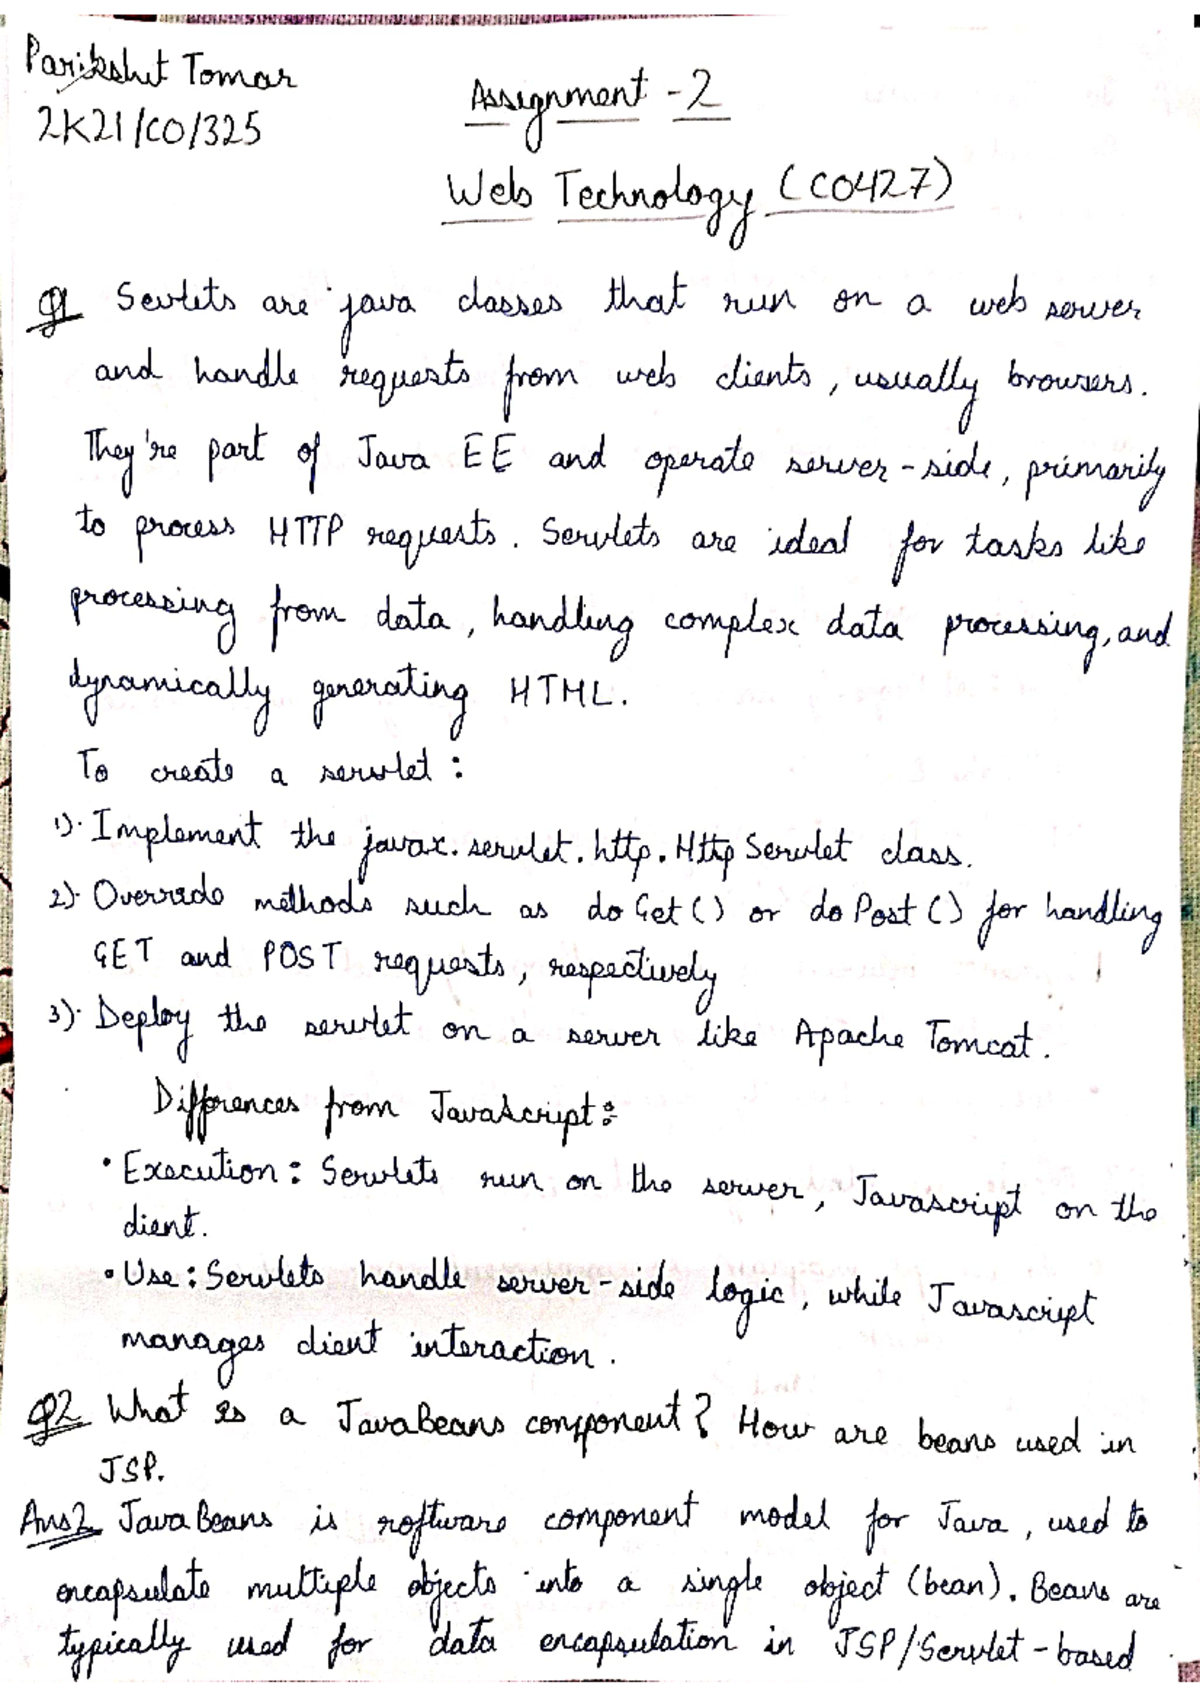 Parikshit Tomar
2K21/CO/325
Assignment - 2
Web Technology (CO427)
Q1 Sevlets are java classes that run on a web server
and handle requests from web clients, usually browsers.
They're part of Java EE and operate server-side, primarily
to process HTTP requests. Servlets are ideal for tasks like
processing from data, handling complex data processing, and
dynamically generating HTML.
To create a servlet :
1). Implement the javax.servlet.http.HttpServlet class.
2). Override methods such as doGet() or doPost() for handling
GET and POST requests, respectively
3). Deploy the servlet on a server like Apache Tomcat.
Diffrences from JavaScript :
• Execution : Servlets run on the server, Javascript on the
client.
• Use : Servlets handle server-side logic, while Javascript
manages client interaction.
Q2 What is a JavaBeans component? How are beans used in
JSP.
Ans2 JavaBeans is software component model for Java, used to
encapsulate multiple objects into a single object (bean). Beans are
typically used for data encapsulation in JSP/Servlet-based